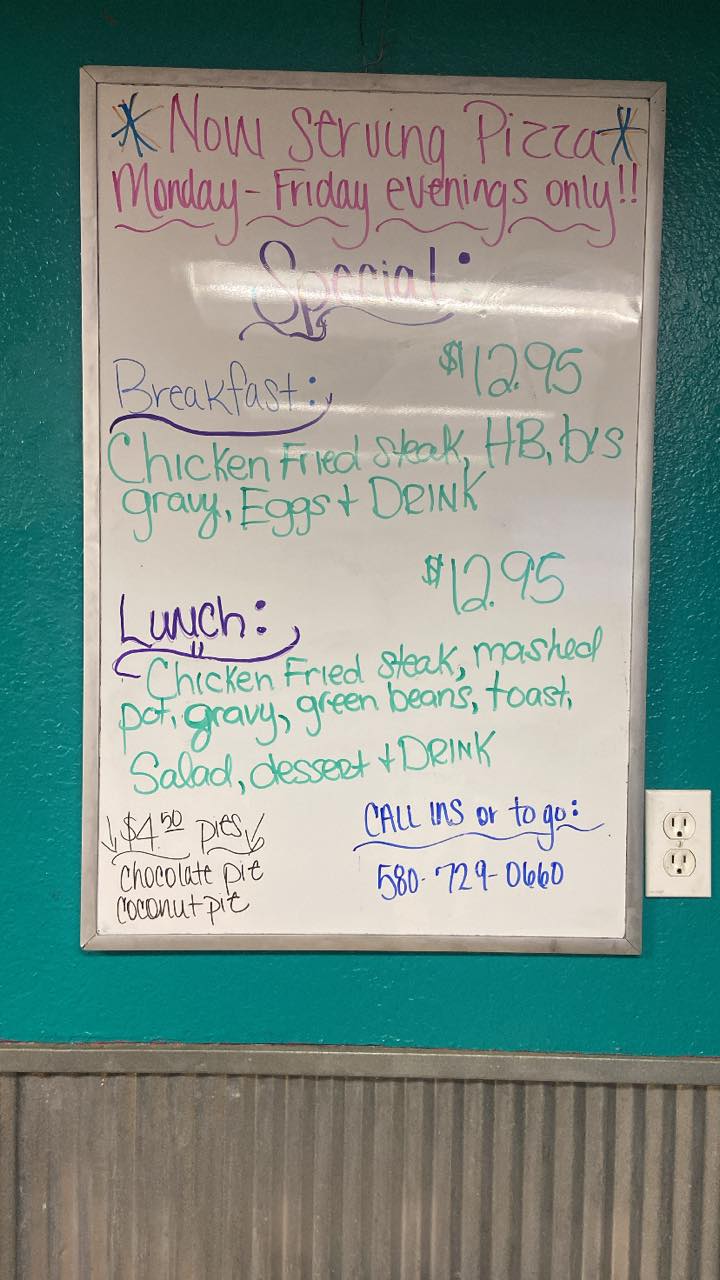 Now Serving Pizza
Monday - Friday evenings only!!
Special:
Breakfast: $12.95
Chicken Fried steak, HB, b/s
gravy, Eggs + DRINK
$12.95
Lunch:
Chicken Fried steak, mashed
pot, gravy, green beans, toast,
Salad, dessert + DRINK
$4.50 pies
chocolate pie
coconut pie
CALL INS or to go:
580-729-0660